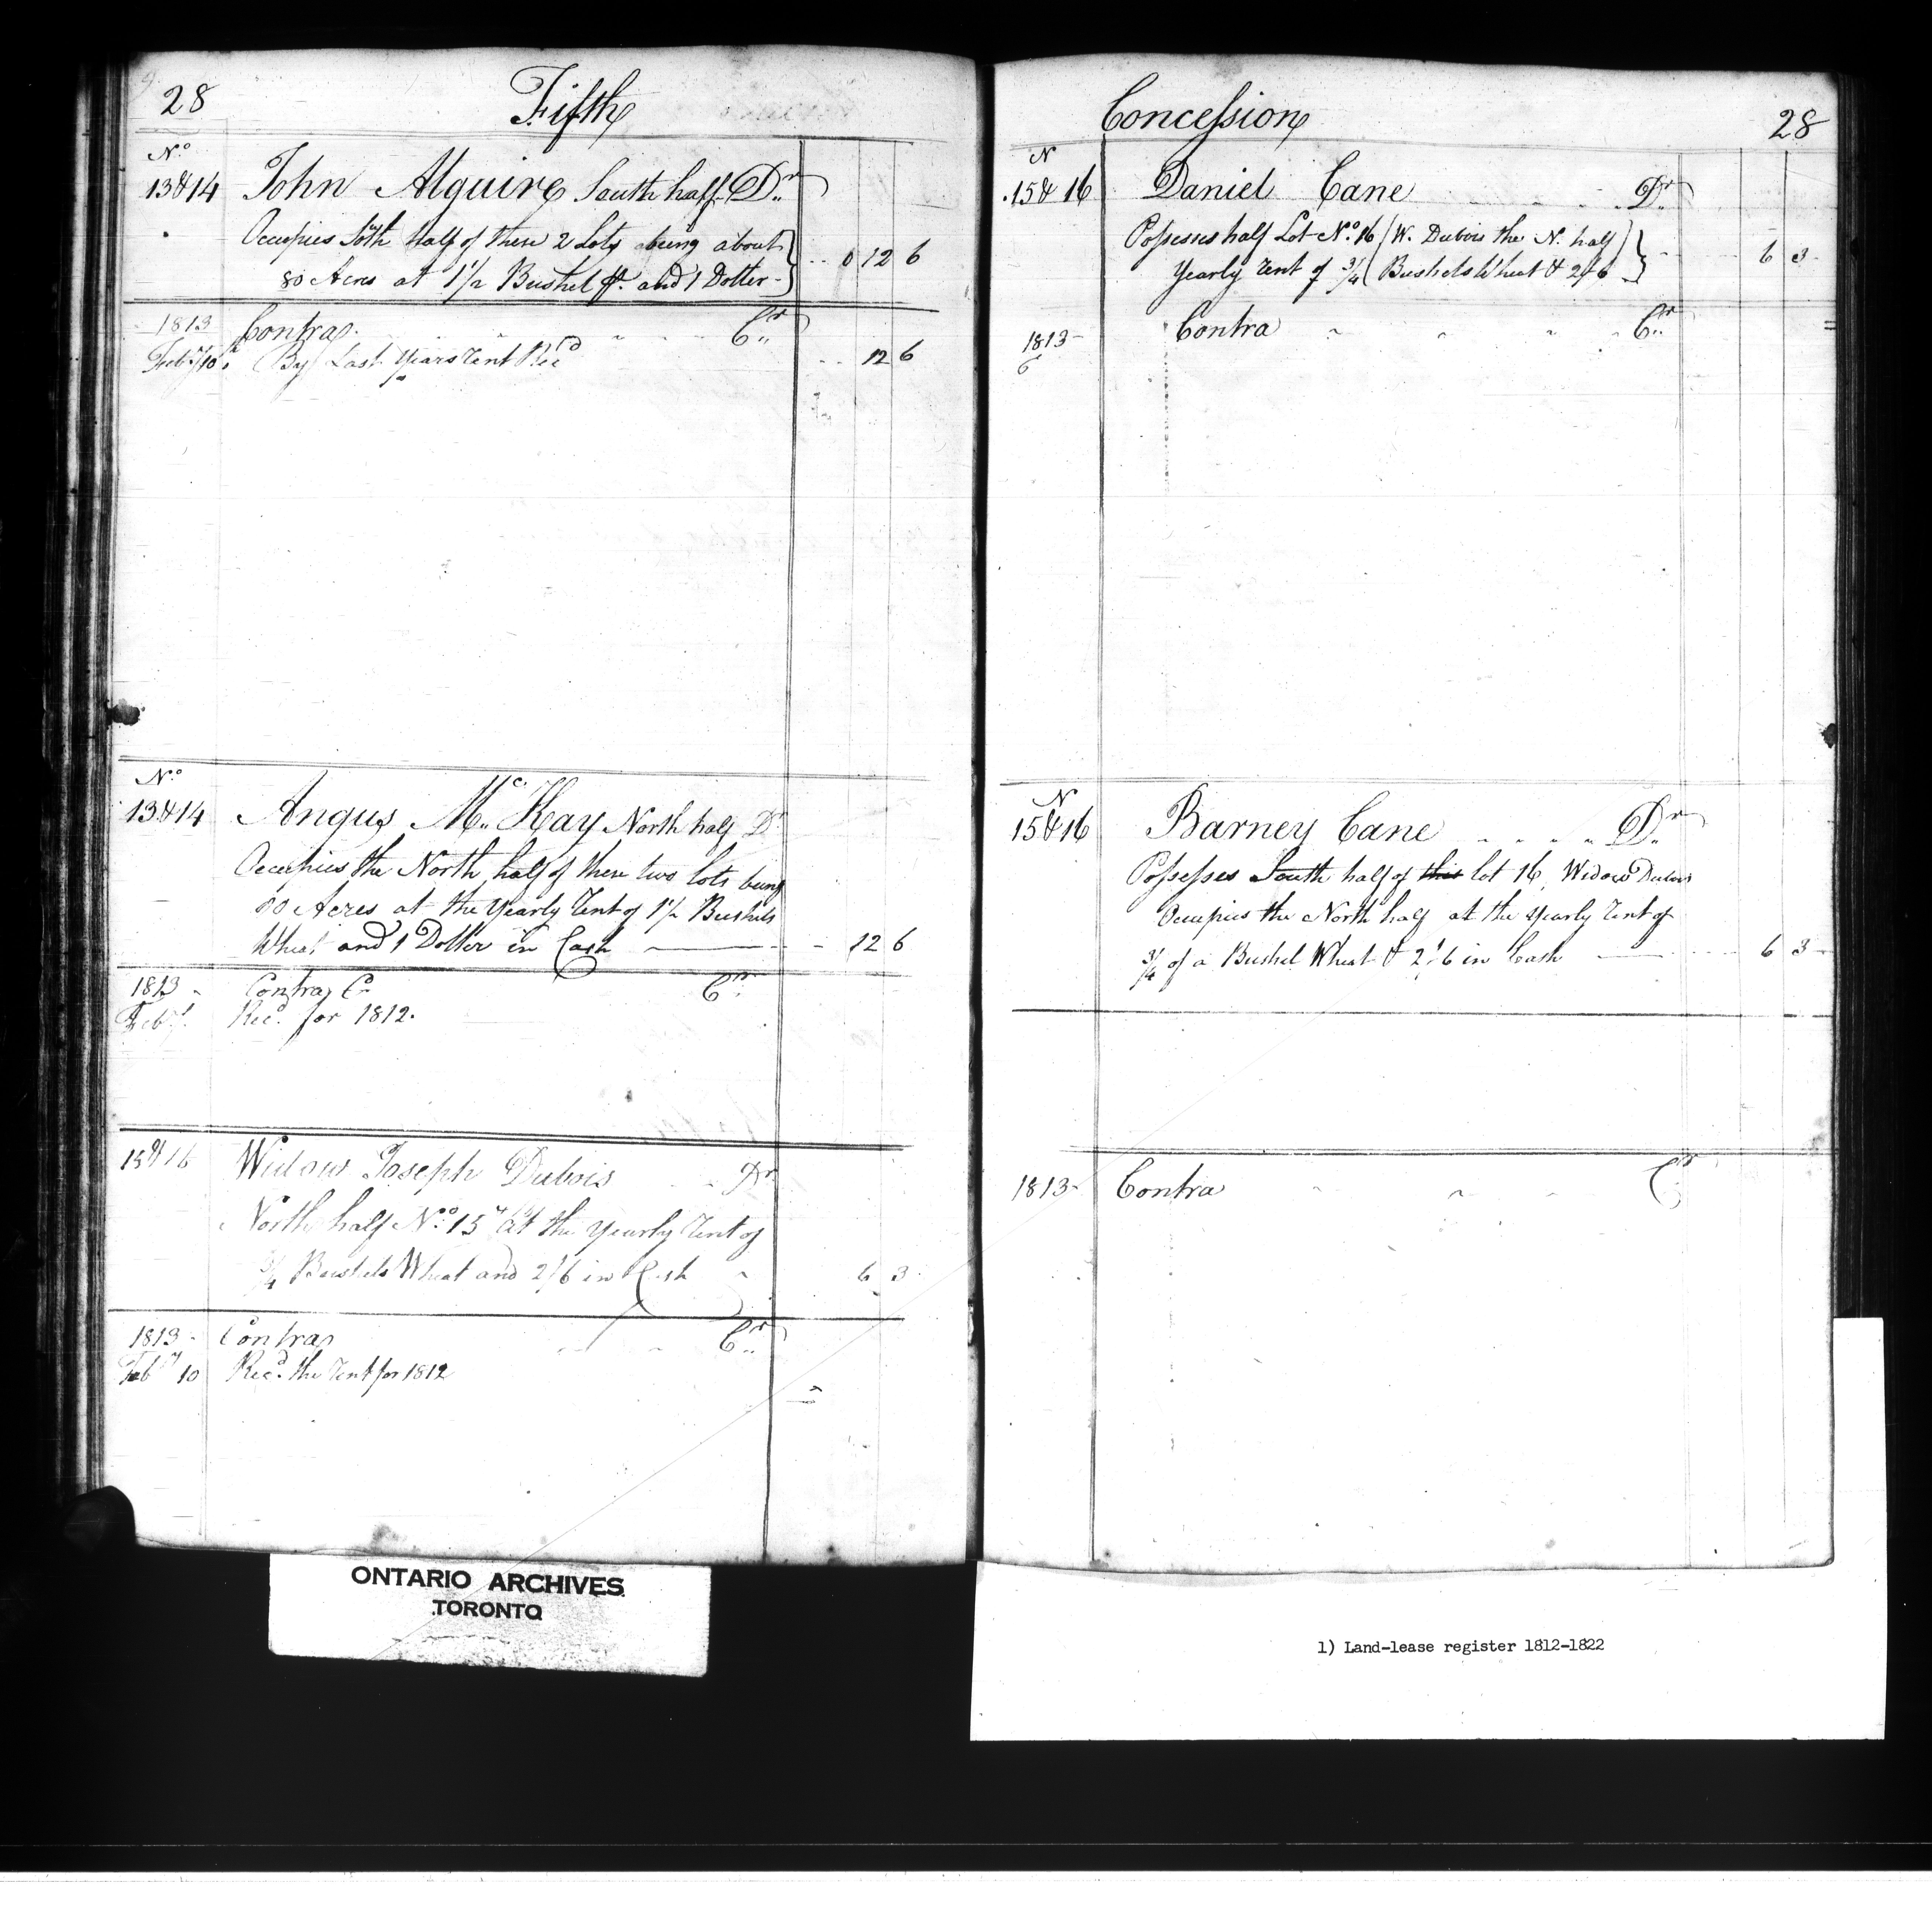 28 Fifth
No.
13 & 14 John Alguire South half Dr.
Occupies Soth half of these 2 Lots being about
80 Acres at 1 1/2 Bushel & and 1 Dotter - 0 12 6
1813 Contra Cr.
Feby 10 By Last Years Rent Recd 12 6
No.
13 & 14 Angus Mc. Kay North half Dr
Occupies the North half of these two lots being
80 Acres at the Yearly Rent of 1 1/2 Bushels
Wheat and 1 Dotter in Cash 12 6
1813 - Contra Cr.
Feby. Recd. for 1812.
15 & 16 Widow Joseph Dubois Dr
North half No. 15 at the Yearly Rent of
3/4 Bushels Wheat and 2/6 in Cash 6 3
1813 - Contra Cr.
Feby 10 Recd. the Rent for 1812
Concession 28
N
15 & 16 Daniel Cane Dr.
Possesses half Lot No. 16 (W. Dubois the N. half)
Yearly Rent of 3/4 (Bushels Wheat & 2/6 6 3
1813 - Contra Cr.
6
N
15 & 16 Barney Cane Dr.
Possesses South half of this lot 16, Widow Dubois
Occupies the North half at the Yearly Rent of
3/4 of a Bushel Wheat & 2/6 in Cash 6 3
1813 - Contra Cr
ONTARIO ARCHIVES
TORONTO
1) Land-lease register 1812-1822